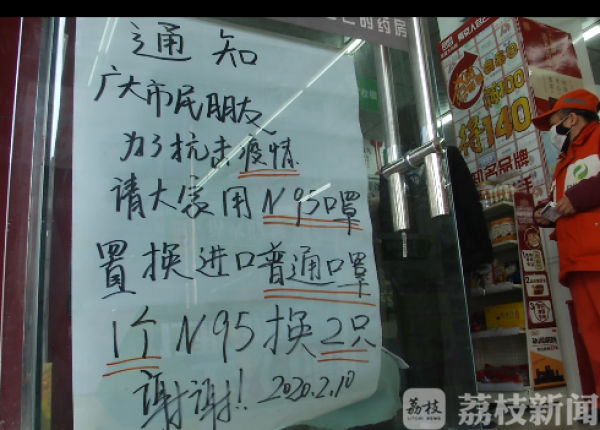 通知
广大市民朋友
为了抗击疫情
请大家用N95口罩
置换进口普通口罩
1个N95换2只
谢谢!! 2020.2.10
的药房
特140
知名品牌
荔枝
LITCHI NEWS
荔枝新闻